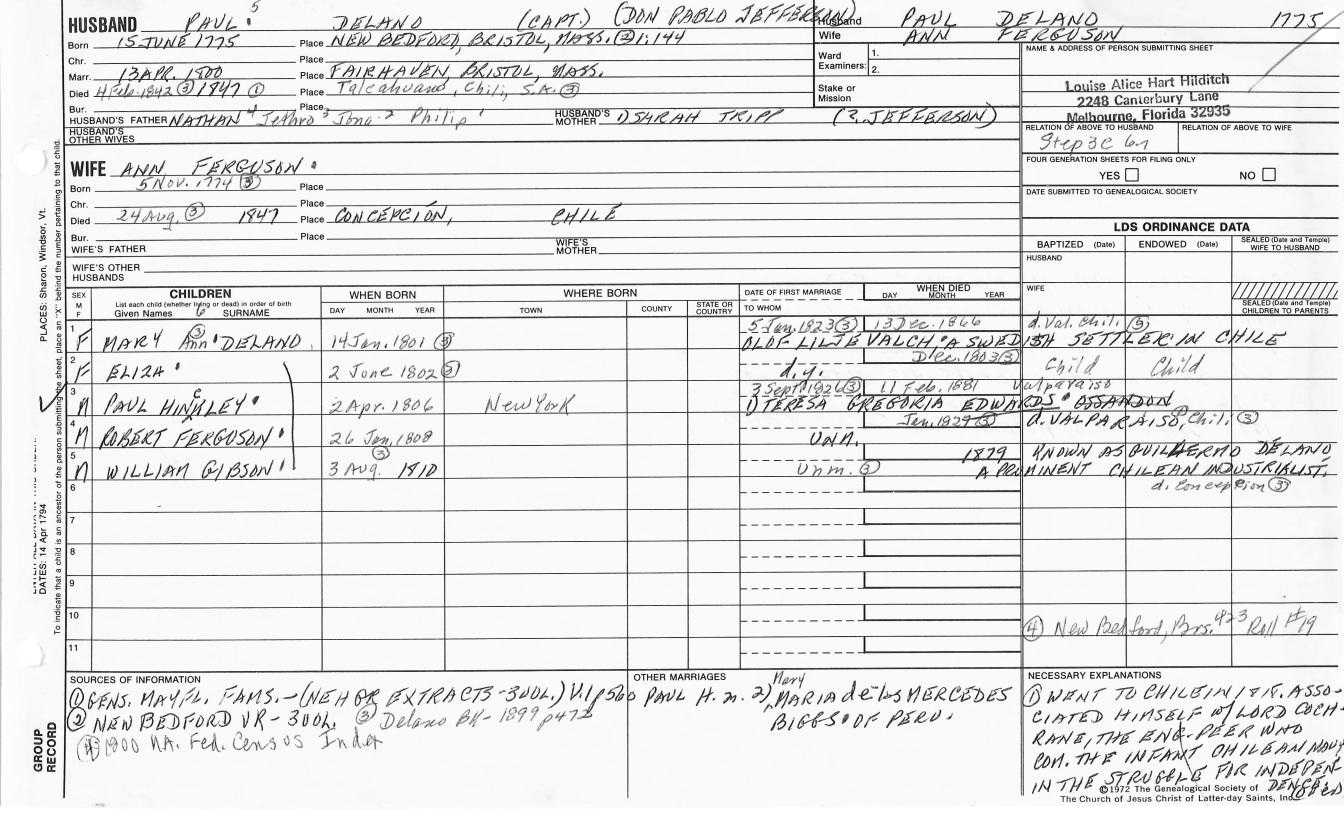 HUSBAND PAUL 5 DELANO (CAPT.) (DON PABLO JEFFERSON)
Born 15 JUNE 1775 Place NEW BEDFORD, BRISTOL, MASS. ② 1:144
Chr. Place
Marr. 13 APR. 1800 Place FAIRHAVEN, BRISTOL, MASS.
Died 4 Feb. 1842 ③ 1847 ① Place Talcahuano, Chili, S.A. ③
Bur. Place
HUSBAND'S FATHER NATHAN 4 Jethro 3 Jona 2 Philip 1 HUSBAND'S MOTHER 1) SARAH TRIPP (2, JEFFERSON)
HUSBAND'S OTHER WIVES
Husband PAUL DELANO 1775
Wife ANN FERGUSON
Ward
Examiners: 1.
2.
Stake or
Mission
NAME & ADDRESS OF PERSON SUBMITTING SHEET
Louise Alice Hart Hilditch
2248 Canterbury Lane
Melbourne, Florida 32935
RELATION OF ABOVE TO HUSBAND RELATION OF ABOVE TO WIFE
Step 3C 6n
FOUR GENERATION SHEETS FOR FILING ONLY
YES NO
DATE SUBMITTED TO GENEALOGICAL SOCIETY
WIFE ANN FERGUSON
Born 5 Nov. 1774 ③ Place
Chr. Place
Died 24 Aug. ③ 1847 Place CONCEPCIÓN, CHILE
Bur. Place
WIFE'S FATHER WIFE'S MOTHER
WIFE'S OTHER HUSBANDS
LDS ORDINANCE DATA
BAPTIZED (Date) ENDOWED (Date) SEALED (Date and Temple) WIFE TO HUSBAND
HUSBAND
WIFE
SEALED (Date and Temple) CHILDREN TO PARENTS
SEX M F
CHILDREN
List each child (whether living or dead) in order of birth
Given Names 6 SURNAME
WHEN BORN
DAY MONTH YEAR
WHERE BORN
TOWN COUNTY STATE OR COUNTRY
DATE OF FIRST MARRIAGE
TO WHOM
WHEN DIED
DAY MONTH YEAR
1 F MARY Ann ③ DELANO 14 Jan. 1801 ③ 5 Jan. 1823 ③ 13 Dec. 1866 d. Val. Chil. ③
OLOF LILJEVALCH "A SWEDISH SETTLER IN CHILE
2 F ELIZA 2 June 1802 ③ d.y. Dec. 1803 ③ Child Child
3 M PAUL HINCKLEY 2 Apr. 1806 New York 3 Sept. 1826 ③ 11 Feb. 1881 Valparaiso
1) TERESA GREGORIA EDWARDS OSSANDON
4 M ROBERT FERGUSON 26 Jan. 1808 unm. Jan. 1829 ③ d. VALPARAISO, Chil. ③
5 M WILLIAM GIBSON 3 Aug. ③ 1810 Unm. ③ 1879 KNOWN AS GUILLERMO DELANO
A PROMINENT CHILEAN INDUSTRIALIST.
d. Concepcion ③
6
7
8
9
10
④ New Bedford, Brs. 423 Roll #19
11
SOURCES OF INFORMATION
① GENS. MAYFL. FAMS. - (NEHGR EXTRACTS - 3 VOL.) V.1 p560
② NEW BEDFORD VR - 3 VOL. ③ Delano BK - 1899 p472
④ 1800 MA. Fed. Census Index
OTHER MARRIAGES
PAUL H. m. 2) Mary MARIA de los MERCEDES
BIGGS OF PERU.
NECESSARY EXPLANATIONS
① WENT TO CHILE IN 1818. ASSO-
CIATED HIMSELF w/ LORD COCH-
RANE, THE ENG. PEER WHO
COM. THE INFANT CHILEAN NAVY
IN THE STRUGGLE FOR INDEPEN-
DENCE
©1972 The Genealogical Society of
The Church of Jesus Christ of Latter-day Saints, Inc.
PLACES: Sharon, Windsor, Vt.
DATES: 14 Apr 1794
To indicate that a child is an ancestor of the person submitting the sheet, place an "X" behind the number pertaining to that child.
GROUP
RECORD